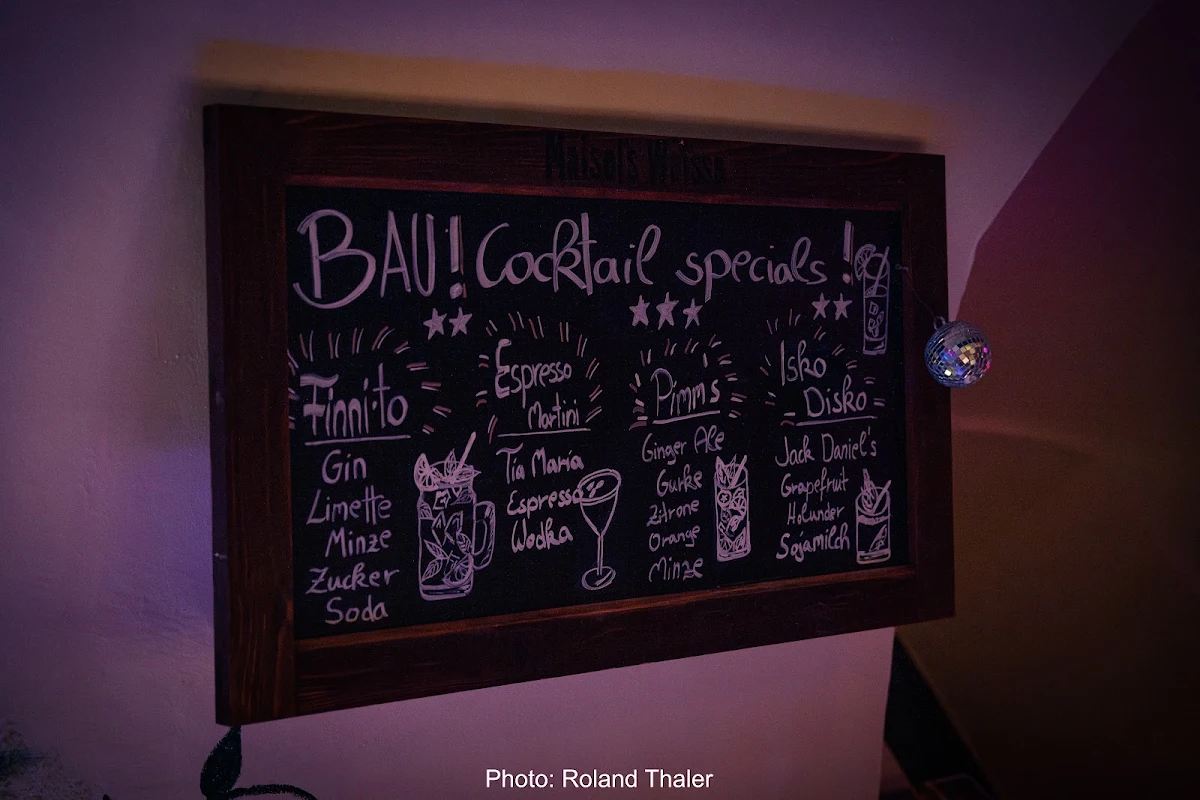 Maisel's Weisse
BAU! Cocktail specials!
Finnito
Gin
Limette
Minze
Zucker
Soda
Espresso
Martini
Tia Maria
Espresso
Wodka
Pimms
Ginger Ale
Gurke
Zitrone
Orange
Minze
Isko
Disko
Jack Daniel's
Grapefruit
Holunder
Sojamilch
Photo: Roland Thaler